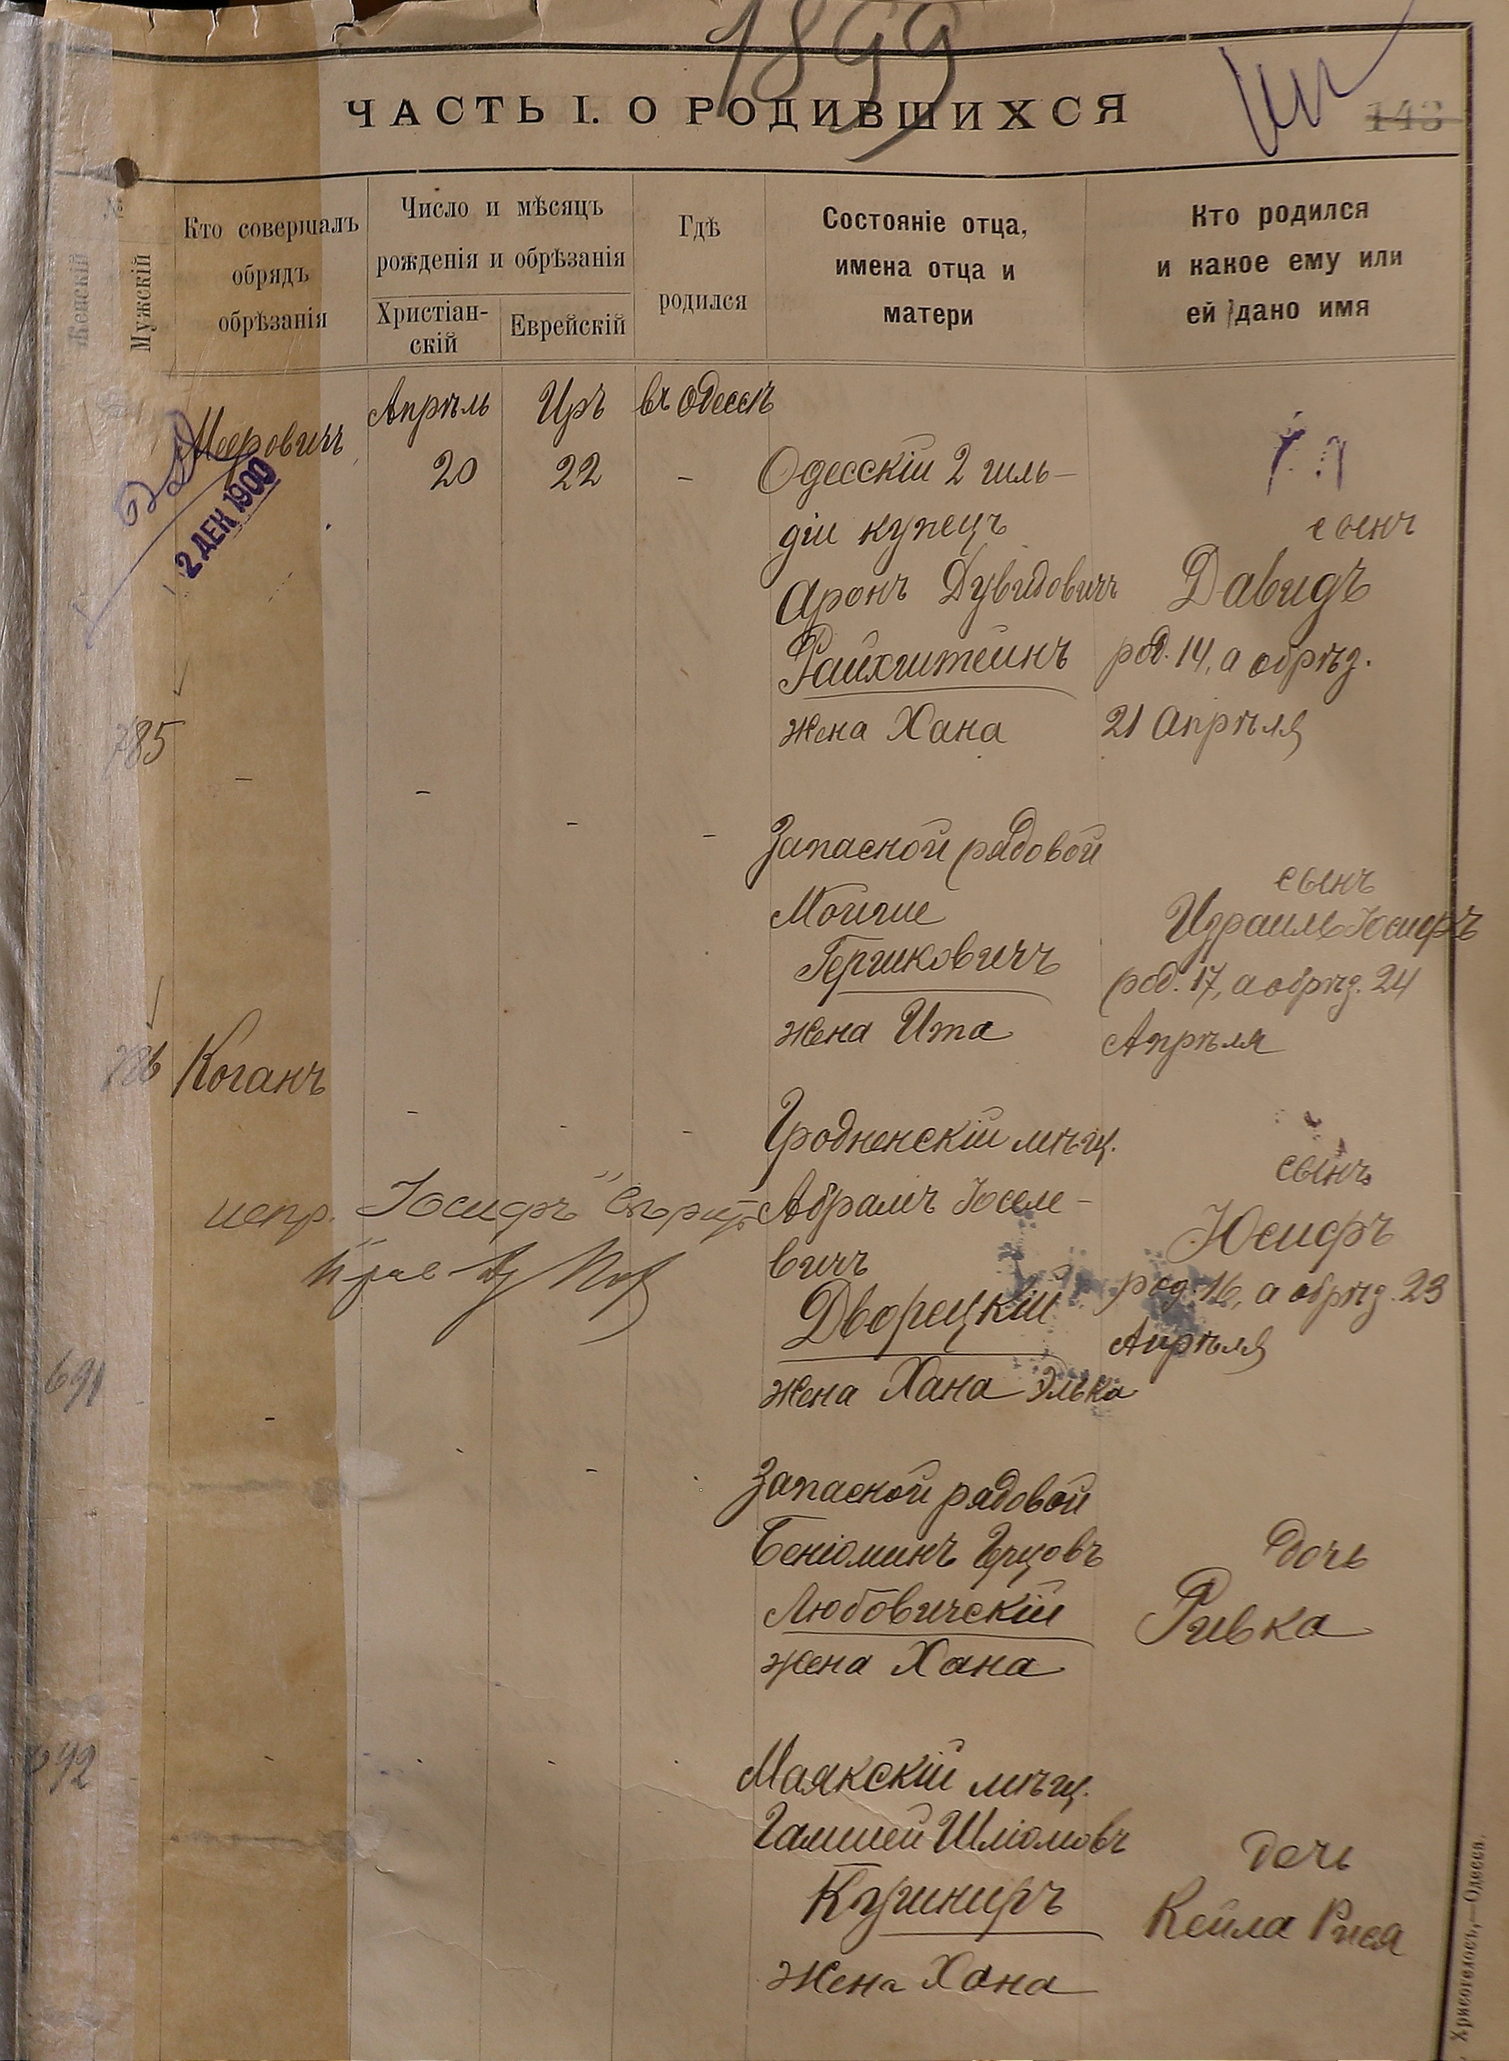 1899
ЧАСТЬ I. О РОДИВШИХСЯ
143
№
Женскій
Мужскій
Кто совершалъ
обрядъ
обрѣзанія
Число и мѣсяцъ
рожденія и обрѣзанія
Христіан-
скій
Еврейскій
Гдѣ
родился
Состояніе отца,
имена отца и
матери
Кто родился
и какое ему или
ей дано имя
Меерович
Апрѣль
Иръ
въ Одессѣ
20
22
-
2. ДЕК 1900
Одесскій 2 гиль-
діи купецъ
Аронъ Дувидовичъ
Райхштейнъ
жена Хана
сынъ
Давидъ
род. 14, а обрѣз.
21 Апрѣля
785
-
-
-
-
Запасной рядовой
Мойше
Гершковичъ
жена Ита
сынъ
Израиль Іосифъ
род. 17, а обрѣз. 24
Апрѣля
786
Коганъ
-
-
-
Гродненскій мѣщ.
Абрамъ Іосел-
вичъ
Дворецкій
жена Хана Элька
сынъ
Іосифъ
род. 16, а обрѣз. 23
Апрѣля
испр. "Іосифъ"
691
-
-
Запасной рядовой
Беніоминъ Герцовъ
Любовичскій
жена Хана
дочь
Ривка
692
Маякскій мѣщ.
Шліомовъ
Кушниръ
жена Хана
дочь
Кейла Рися
Хрисогелосъ,—Одесса.